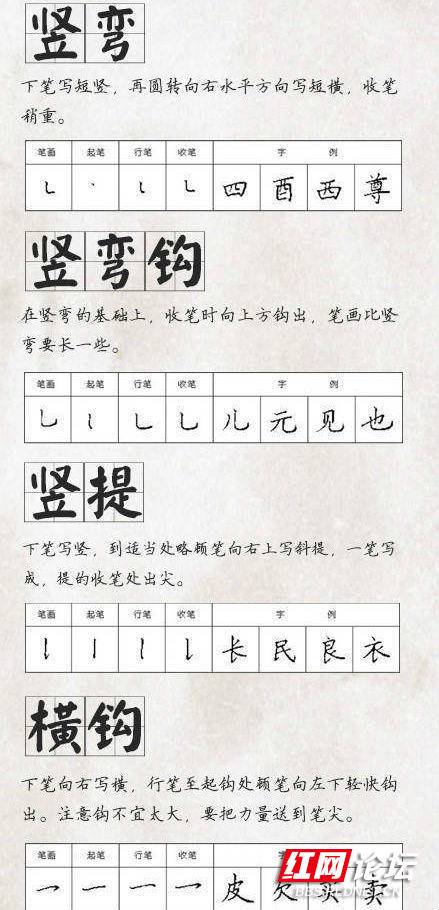 竖弯
下笔写短竖，再圆转向右水平方向写短横，收笔
稍重。
笔画 起笔 行笔 收笔 字 例
四 酉 西 尊
竖弯钩
在竖弯的基础上，收笔时向上方钩出，笔画比竖
弯要长一些。
笔画 起笔 行笔 收笔 字 例
乚 乚 乚 儿 元 见 也
竖提
下笔写竖，到适当处略顿笔向右上写斜提，一笔写
成，提的收笔处出尖。
笔画 起笔 行笔 收笔 字 例
长 民 良 衣
橫钩
下笔向右写横，行笔至起钩处顿笔向左下轻快钩
出。注意钩不宜太大，要把力量送到笔尖。
笔画 起笔 行笔 收笔 字
皮 欠 买 卖
红网论坛